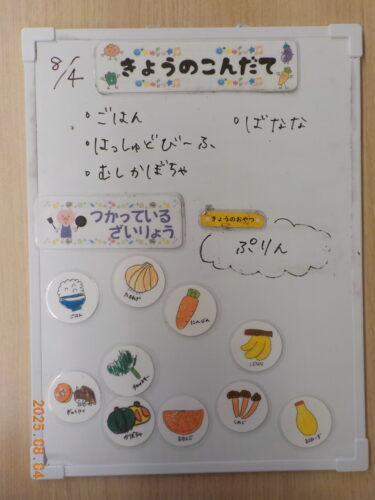 きょうのこんだて
8/4
・ごはん
・ばなな
・はっしゅどびーふ
・むしかぼちゃ
つかっている
ざいりょう
きょうのおやつ
ぷりん
ごはん
たまねぎ
にんじん
かぼちゃ
しめじ
2025.08.04